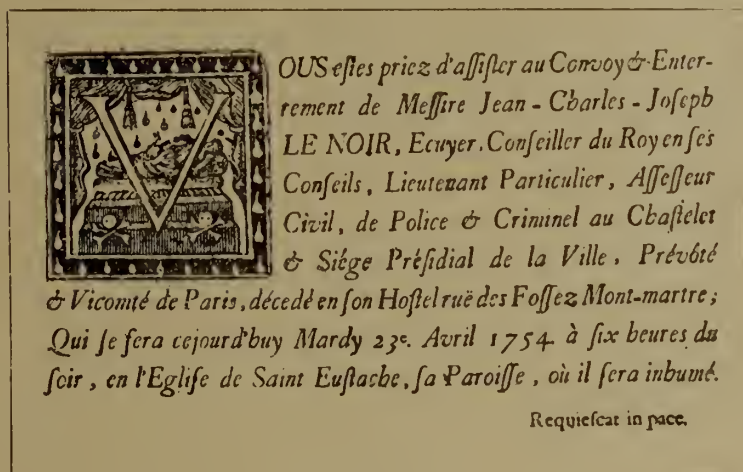 VOUS estes priez d'assister au Convoy & Enter-
rement de Messire Jean - Charles - Joseph
LE NOIR, Ecuyer, Conseiller du Roy en ses
Conseils, Lieutenant Particulier, Assesseur
Civil, de Police & Criminel au Chastelet
& Siége Présidial de la Ville, Prévôté
& Vicomté de Paris, décedé en son Hostel ruë des Fossez Mont-martre;
Qui se fera cejourd'huy Mardy 23e. Avril 1754 à six heures du
soir, en l'Eglise de Saint Eustache, sa Paroisse, où il sera inhumé.
Requiescat in pace.